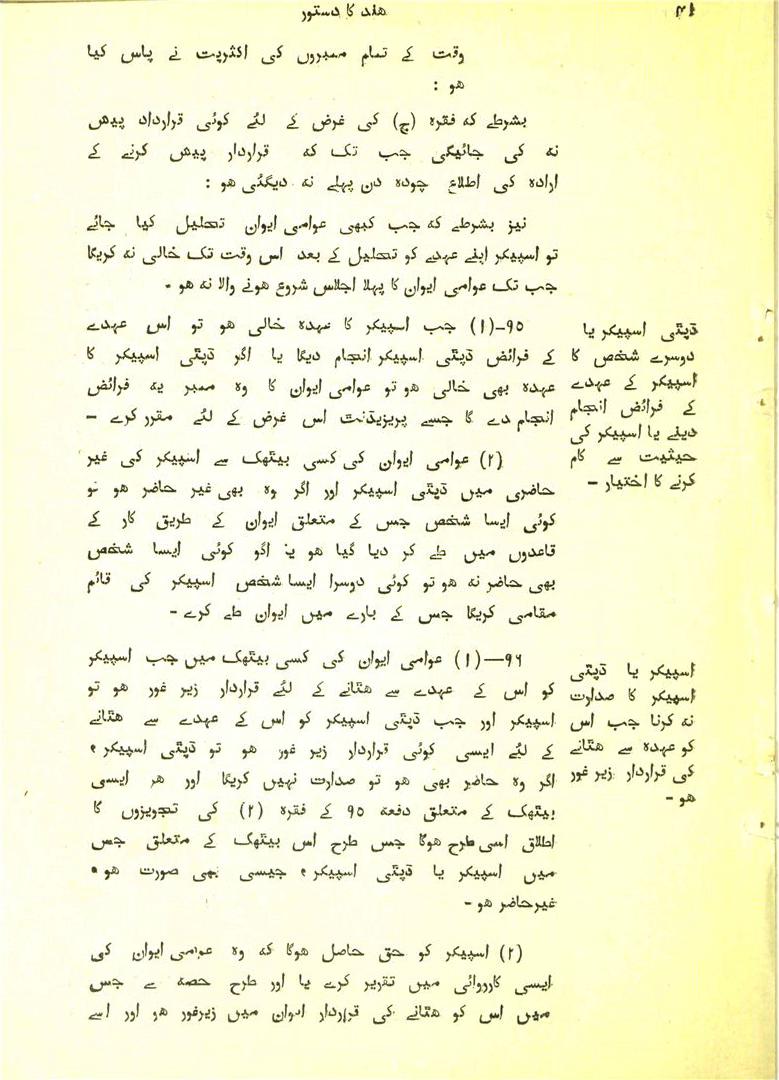 ھند کا دستور
وقت کے تمام ممبروں کی اکثریت نے پاس کیا
ھو :
بشرطے کہ فقرہ (ج) کی غرض کے لئے کوئی قرارداد پیش
نہ کی جائیگی جب تک کہ قراردار پیش کرنے کے
ارادہ کی اطلاع چودہ دن پہلے نہ دیگئی ھو :
نیز بشرطے کہ جب کبھی عوامی ایوان تحلیل کیا جائے
تو اسپیکر اپنے عہدے کو تحلیل کے بعد اس وقت تک خالی نہ کریگا
جب تک عوامی ایوان کا پہلا اجلاس شروع ھونے والا نہ ھو -
ڈپٹی اسپیکر یا
دوسرے شخص کا
اسپیکر کے عہدے
کے فرائض انجام
دینے یا اسپیکر کی
حیثیت سے کام
کرنے کا اختیار -
۹۵-(۱) جب اسپیکر کا عہدہ خالی ھو تو اس عہدے
کے فرائض ڈپٹی اسپیکر انجام دیگا یا اگر ڈپٹی اسپیکر کا
عہدہ بھی خالی ھو تو عوامی ایوان کا وہ ممبر یہ فرائض
انجام دے گا جسے پریزیڈنٹ اس غرض کے لئے مقرر کرے -
(۲) عوامی ایوان کی کسی بیٹھک سے اسپیکر کی غیر
حاضری میں ڈپٹی اسپیکر اور اگر وہ بھی غیر حاضر ھو تو
کوئی ایسا شخص جس کے متعلق ایوان کے طریق کار کے
قاعدوں میں طے کر دیا گیا ھو یا اگو کوئی ایسا شخص
بھی حاضر نہ ھو تو کوئی دوسرا ایسا شخص اسپیکر کی قائم
مقامی کریگا جس کے بارے میں ایوان طے کرے -
اسپیکر یا ڈپٹی
اسپیکر کا صدارت
نہ کرنا جب اس
کو عہدہ سے ھٹانے
کی قراردار زیر غور
ھو -
۹۶—(۱) عوامی ایوان کی کسی بیٹھک میں جب اسپیکر
کو اس کے عہدے سے ھٹانے کے لئے قراردار زیر غور ھو تو
اسپیکر اور جب ڈپٹی اسپیکر کو اس کے عہدے سے ھٹانے
کے لئے ایسی کوئی قراردار زیر غور ھو تو ڈپٹی اسپیکر ،
اگر وہ حاضر بھی ھو تو صدارت نہیں کریگا اور ھر ایسی
بیٹھک کے متعلق دفعہ ۹۵ کے فقرہ (۲) کی تجویزوں کا
اطلاق اسی طرح ھوگا جس طرح اس بیٹھک کے متعلق جس
میں اسپیکر یا ڈپٹی اسپیکر ، جیسی بھی صورت ھو ،
غیر حاضر ھو -
(۲) اسپیکر کو حق حاصل ھوگا کہ وہ عوامی ایوان کی
ایسی کارروائی میں تقریر کرے یا اور طرح حصہ لے جس
میں اس کو ھٹانے کی قراردار ایوان میں زیرغور ھو اور اسے